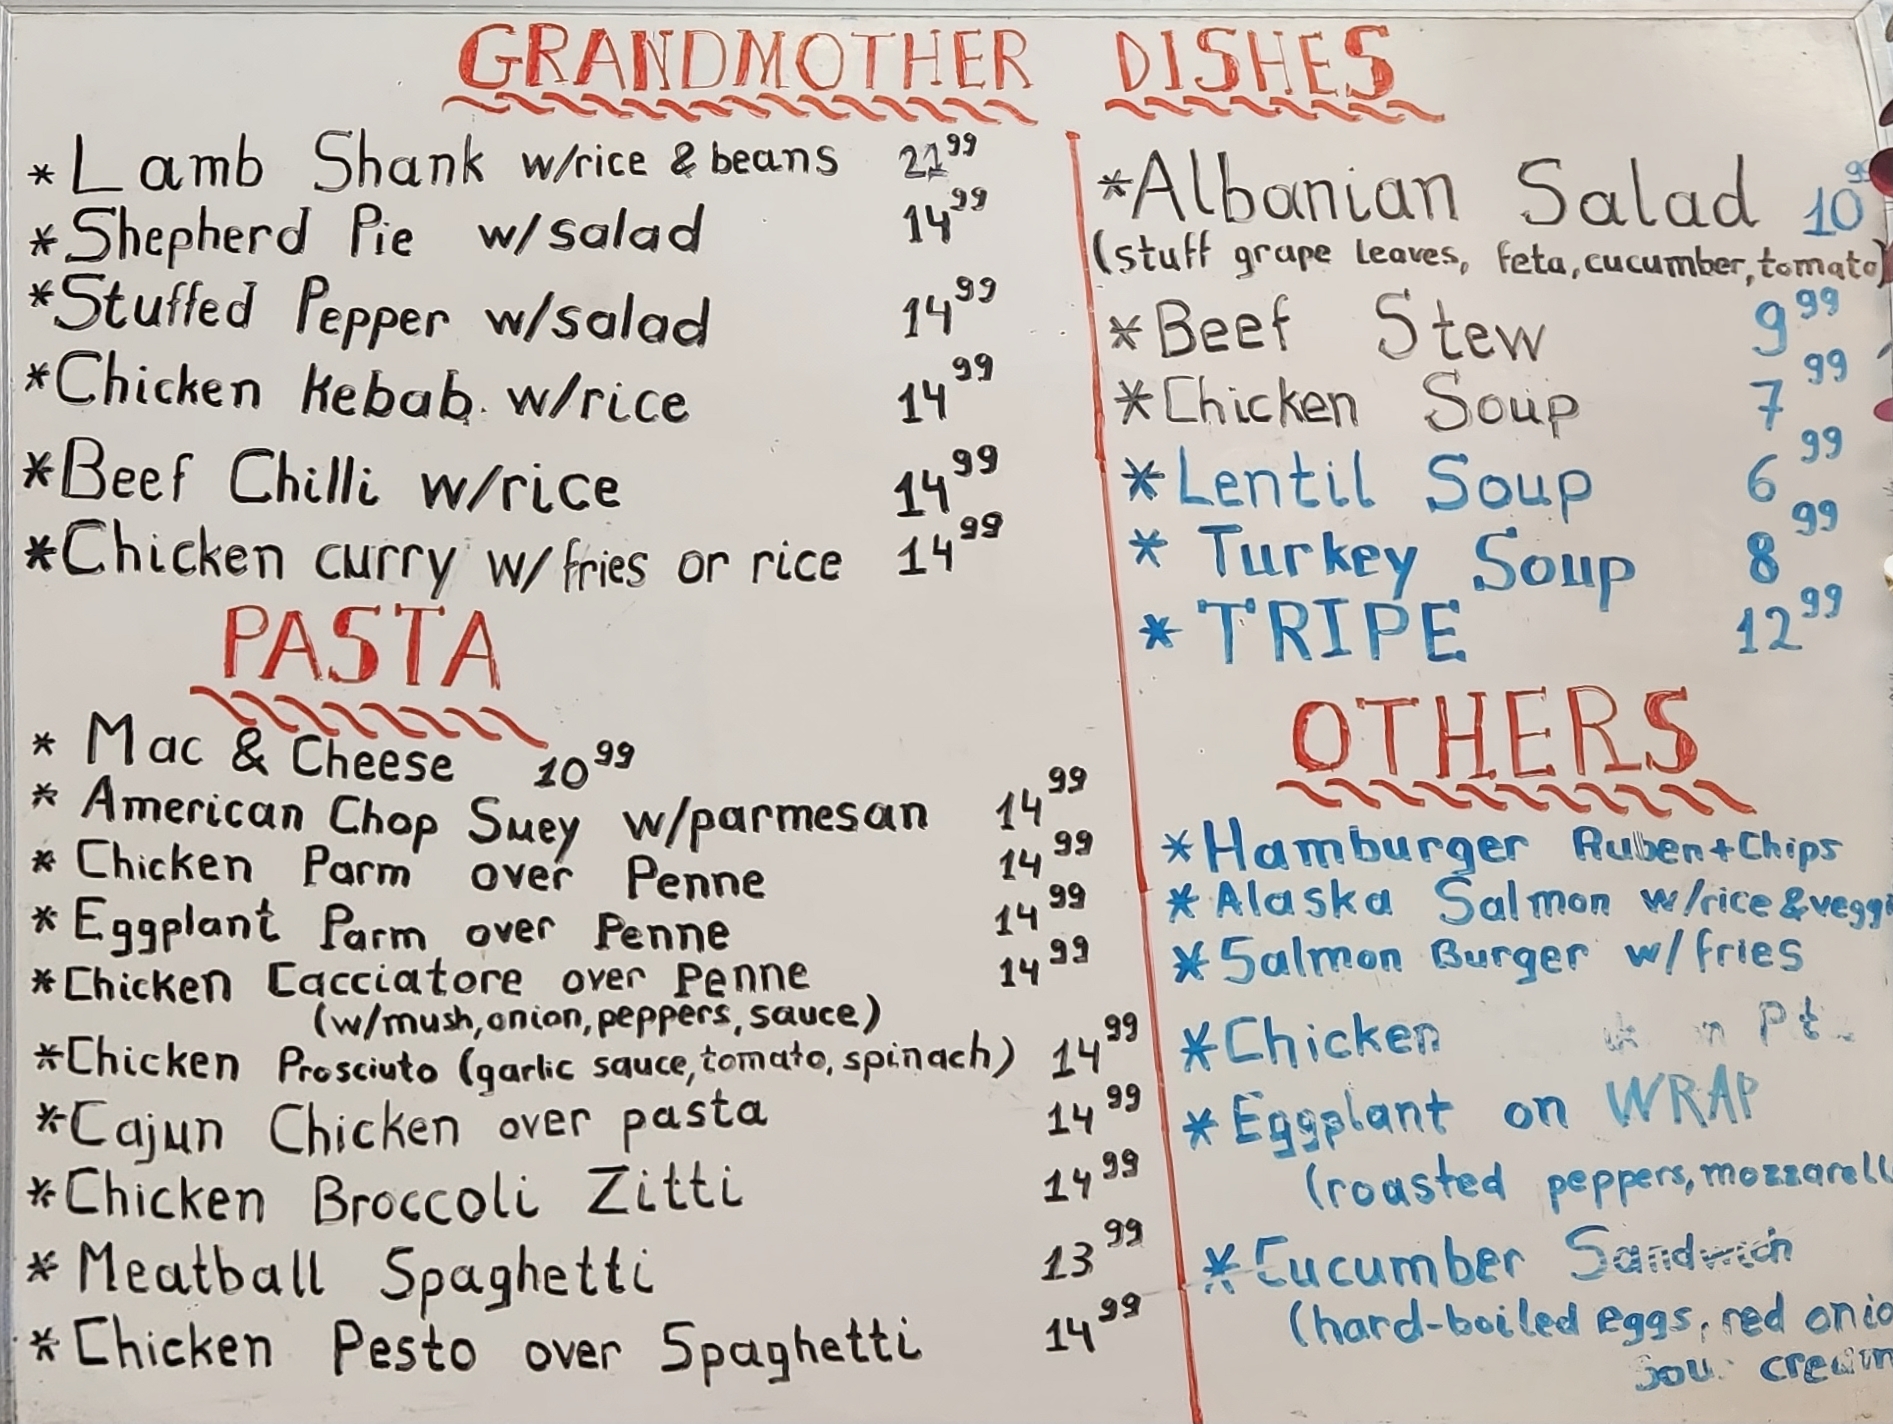 GRANDMOTHER DISHES
* Lamb Shank w/rice & beans 21 99
* Shepherd Pie w/salad 14 99
* Stuffed Pepper w/salad 14 99
* Chicken kebab w/rice 14 99
* Beef Chilli w/rice 14 99
* Chicken curry w/fries or rice 14 99
PASTA
* Mac & Cheese 10 99
* American Chop Suey w/parmesan 14 99
* Chicken Parm over Penne 14 99
* Eggplant Parm over Penne 14 99
* Chicken Cacciatore over Penne 14 99
(w/mush, onion, peppers, sauce)
* Chicken Prosciuto (garlic sauce, tomato, spinach) 14 99
* Cajun Chicken over pasta 14 99
* Chicken Broccoli Zitti 14 99
* Meatball Spaghetti 13 99
* Chicken Pesto over Spaghetti 14 99
* Albanian Salad 10 99
(stuff grape leaves, feta, cucumber, tomato)
* Beef Stew 9 99
* Chicken Soup 7 99
* Lentil Soup 6 99
* Turkey Soup 8 99
* TRIPE 12 99
OTHERS
* Hamburger Ruben + Chips
* Alaska Salmon w/rice & veggi
* Salmon Burger w/fries
* Chicken
* Eggplant on WRAP
(roasted peppers, mozzarell
* Cucumber Sandwich
(hard-boiled eggs, red onio
cream